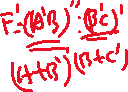 F'=((A'B)'':(B'C)'
(A+B')(B+C')